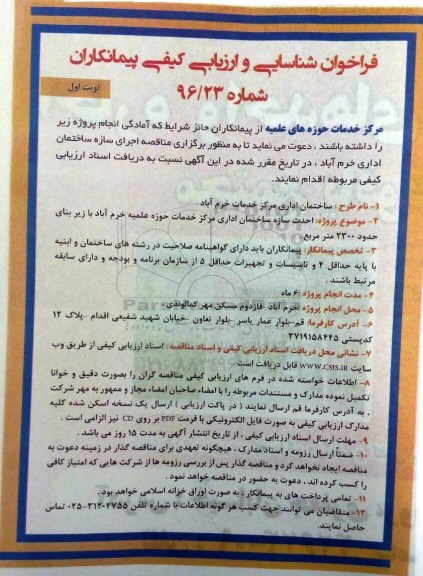 فراخوان شناسایی و ارزیابی کیفی پیمانکاران
شماره ۹۶/۲۳
نوبت اول
مرکز خدمات حوزه های علمیه از پیمانکاران حائز شرایط که آمادگی انجام پروژه زیر
را داشته باشند ، دعوت می نماید تا به منظور برگزاری مناقصه اجرای سازه ساختمان
اداری خرم آباد ، در تاریخ مقرر شده در این آگهی نسبت به دریافت اسناد ارزیابی
کیفی مربوطه اقدام نمایند.
۱- نام طرح : ساختمان اداری مرکز خدمات خرم آباد
۲- موضوع پروژه: احداث سازه ساختمان اداری مرکز خدمات حوزه علمیه خرم آباد با زیر بنای
حدود ۲۳۰۰ متر مربع
۳- تخصص پیمانکار: پیمانکاران باید دارای گواهینامه صلاحیت در رشته های ساختمان و ابنیه
با پایه حداقل ۴ و تاسیسات و تجهیزات حداقل ۵ از سازمان برنامه و بودجه و دارای سابقه
مرتبط باشند .
۴- مدت انجام پروژه : ۶ ماه
۵- محل انجام پروژه :خرم آباد -فازدوم مسکن مهر کمالوندی
۶- آدرس کارفرما: قم-بلوار عمار یاسر -بلوار تعاون -خیابان شهید شفیعی اقدام -پلاک ۱۲
کدپستی ۳۷۱۹۱۵۸۴۴۵
۷- نشانی محل دریافت اسناد ارزیابی کیفی و اسناد مناقصه : اسناد ارزیابی کیفی از طریق وب
سایت WWW.CSIS.IR قابل دریافت است .
۸- اطلاعات خواسته شده در فرم های ارزیابی کیفی مناقصه گران را بصورت دقیق و خوانا
تکمیل نموده مدارک و مستندات مربوطه را با امضاء صاحبان امضاء مجاز و ممهور به مهر شرکت
، به آدرس کارفرما قم ارسال نمایند ( در پاکت ارزیابی ) ارسال یک نسخه اسکن شده کلیه
مدارک ارزیابی کیفی به صورت فایل الکترونیکی با فرمت PDF بر روی CD نیز الزامی است .
۹- مهلت ارسال اسناد ارزیابی کیفی ، از تاریخ انتشار آگهی به مدت ۱۵ روز می باشد .
۱۰- ضمناً ارسال رزومه و اسناد مدارک ، هیچگونه تعهدی برای مناقصه گذار در زمینه دعوت به
مناقصه ایجاد نخواهد کرد و مناقصه گذار پس از بررسی رزومه ها از شرکت هایی که امتیاز کافی
را کسب کرده اند ، دعوت به حضور در مناقصه خواهد نمود .
۱۱- تمامی پرداخت های به پیمانکار ، به صورت اوراق خزانه اسلامی خواهد بود .
۱۲- متقاضیان می توانند جهت کسب هر گونه اطلاعات با شماره تلفن ۳۱۲۰۴۷۵۵-۰۲۵ تماس
حاصل نمایند.